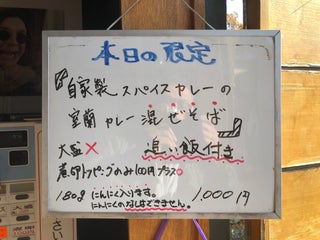 本日の限定
『自家製スパイスカレーの
室蘭カレー混ぜそば』
大盛× 追い飯付き
煮卵トッピングのみ100円プラス○
180g にんにく入ります。 1,000円
にんにくのなしはできません。